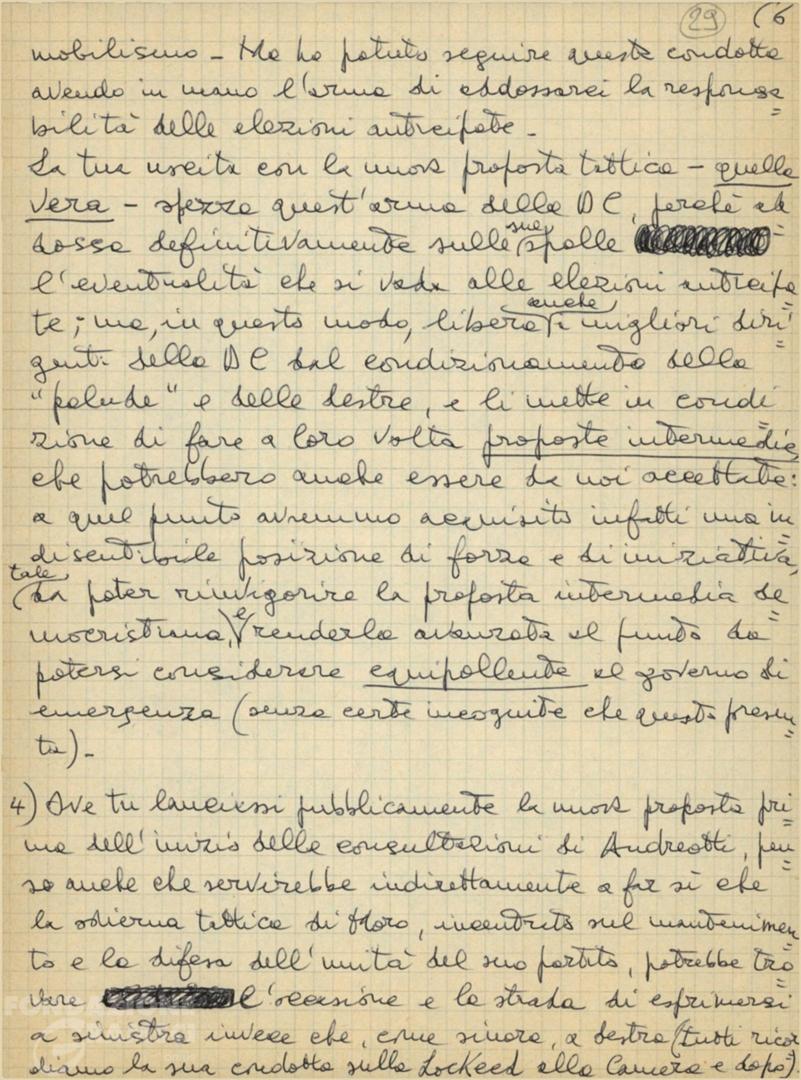 29 (6
mobilismo - Ma ha potuto seguire questa condotta
avendo in mano l'arma di addossarci la responsa=
bilità delle elezioni anticipate -
La tua uscita con la nuova proposta tattica - quella
vera - spezza quest'arma della DC, perché ad=
dossa definitivamente sulle sue spalle
l'eventualità che si vada alle elezioni anticipa=
te; ma, in questo modo, libera anche i migliori diri=
genti della DC dal condizionamento della
"palude" e delle destre, e li mette in condi=
zione di fare a loro volta proposte intermedie,
che potrebbero anche essere da noi accettate:
a quel punto avremmo acquisito infatti una in=
discutibile posizione di forza e di iniziativa,
tale da poter rinvigorire la proposta intermedia de=
mocristiana, e renderla avanzata al punto da
potersi considerare equipollente al governo di
emergenza (senza certe incognite che questo presen=
ta) -
4) Ove tu lanciassi pubblicamente la nuova proposta pri=
ma dell'inizio delle consultazioni di Andreotti, pen=
so anche che servirebbe indirettamente a far sì che
la odierna tattica di Moro, incentrata sul mantenimen=
to e la difesa dell'unità del suo partito, potrebbe tro=
vare l'occasione e la strada di esprimersi
a sinistra invece che, come sinora, a destra (tutti ricor=
diamo la sua condotta sulla Lockeed alla Camera e dopo).